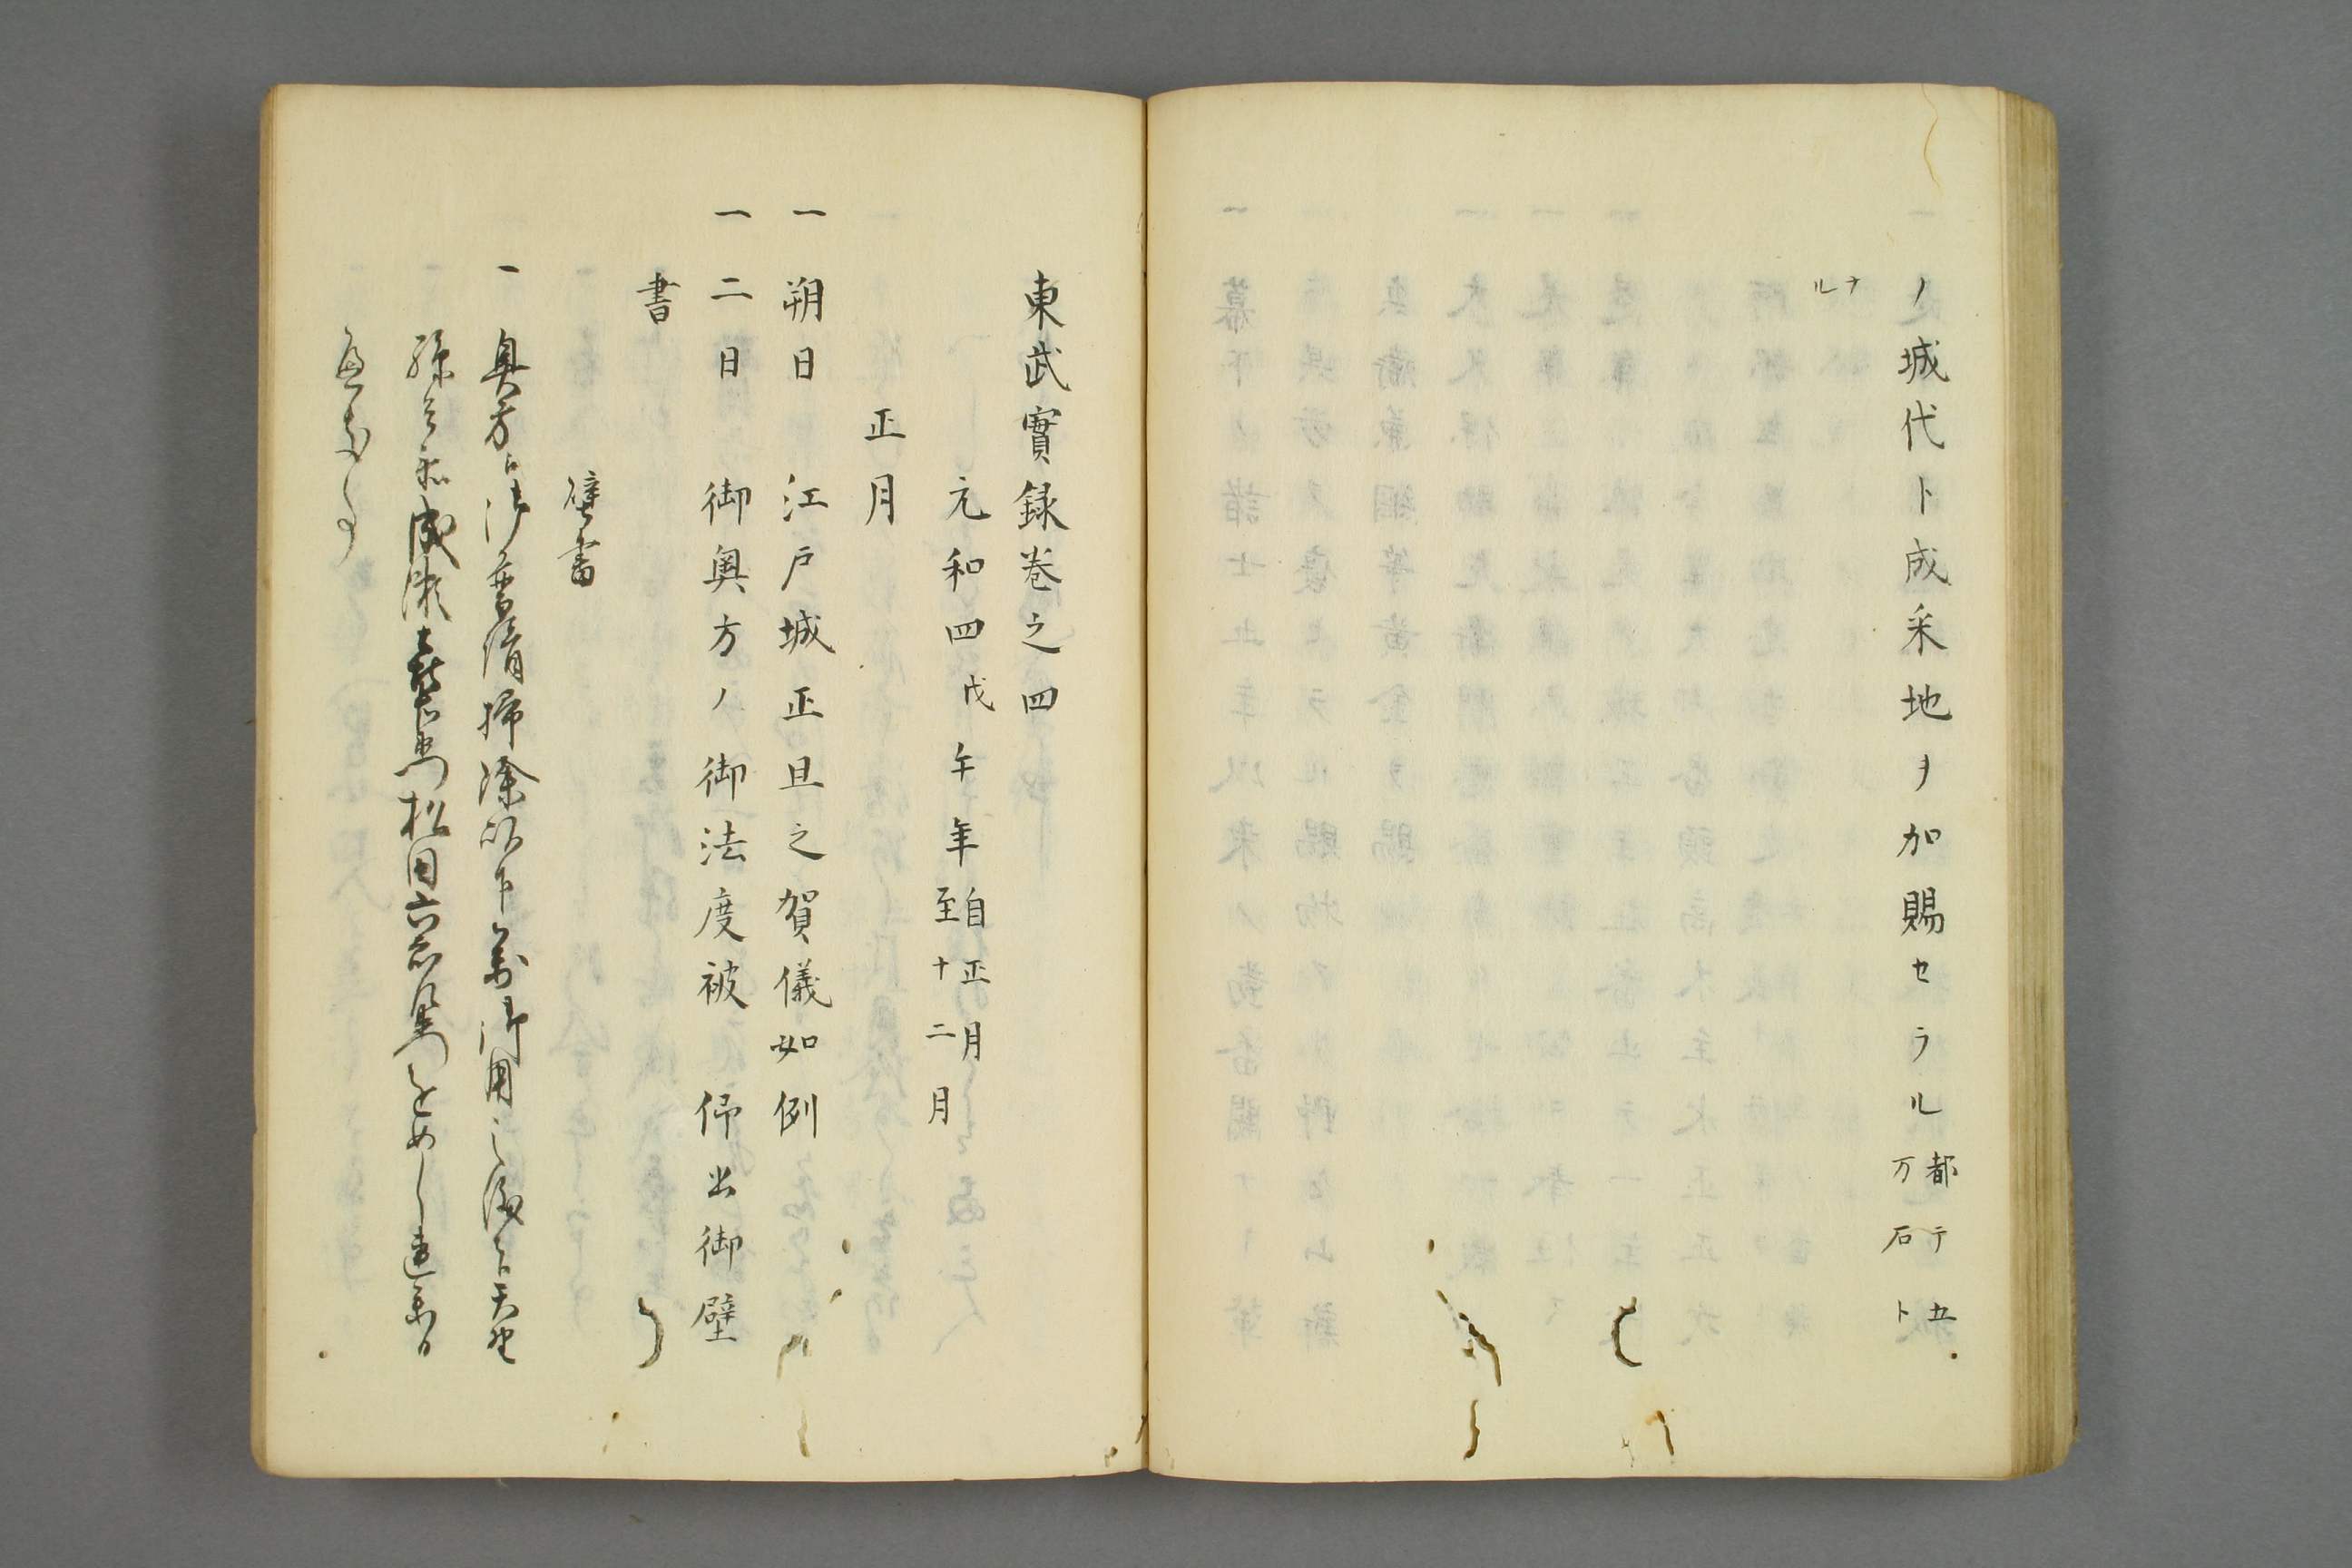 ノ城代ト成采地ヲ加賜セラル都テ五
万石ト
ナ
ル
東武實録巻之四
元和四戊午年自正月
至十二月
正月
一朔日　江戸城正旦之賀儀如例
一二日　御奥方ノ御法度被　仰出御壁
書
壁書
一奥方江御普請掃除以下萬御用之儀者天野
孫兵衛成瀬喜右衛門松田六右衛門をめし連参